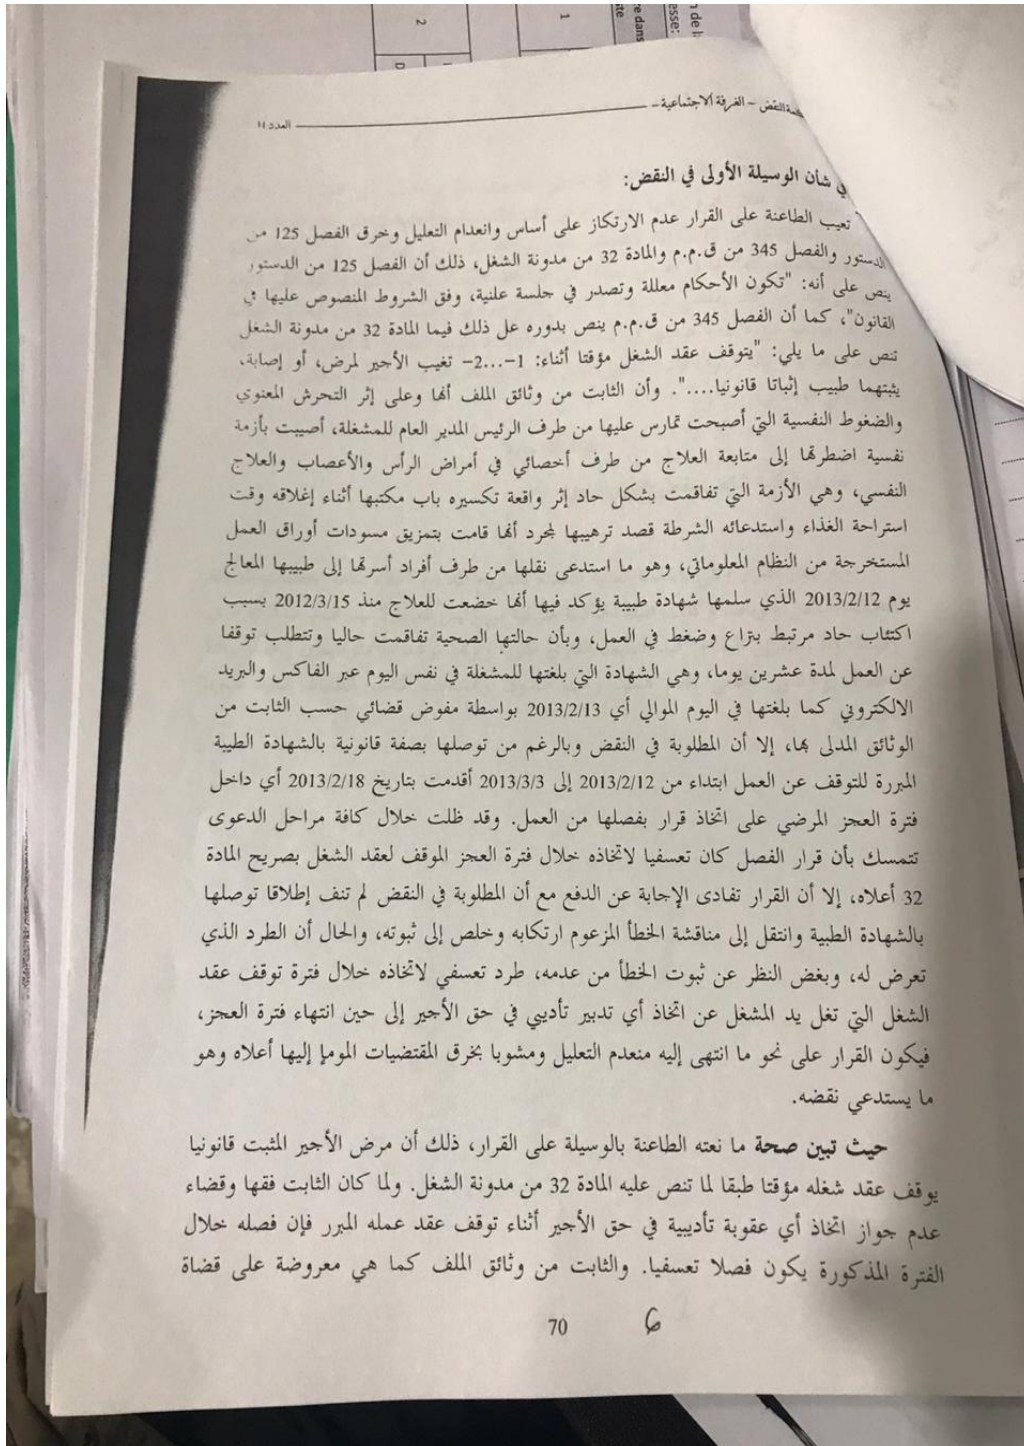 2
1
D
re dans
esse:
النقض – الغرفة الاجتماعية –
العدد 14
شأن الوسيلة الأولى في النقض:
تعيب الطاعنة على القرار عدم الارتكاز على أساس وانعدام التعليل وخرق الفصل 125 من
الدستور والفصل 345 من ق.م.م والمادة 32 من مدونة الشغل، ذلك أن الفصل 125 من الدستور
ينص على أنه: "تكون الأحكام معللة وتصدر في جلسة علنية، وفق الشروط المنصوص عليها في
القانون"، كما أن الفصل 345 من ق.م.م ينص بدوره عل ذلك فيما المادة 32 من مدونة الشغل
تنص على ما يلي: "يتوقف عقد الشغل مؤقتا أثناء: 1-...2- تغيب الأجير لمرض، أو إصابة،
يثبتهما طبيب إثباتا قانونيا....". وأن الثابت من وثائق الملف أنها وعلى إثر التحرش المعنوي
والضغوط النفسية التي أصبحت تمارس عليها من طرف الرئيس المدير العام للمشغلة، أصيبت بأزمة
نفسية اضطرتها إلى متابعة العلاج من طرف أخصائي في أمراض الرأس والأعصاب والعلاج
النفسي، وهي الأزمة التي تفاقمت بشكل حاد إثر واقعة تكسيره باب مكتبها أثناء إغلاقه وقت
استراحة الغذاء واستدعائه الشرطة قصد ترهيبها لمجرد أنها قامت بتمزيق مسودات أوراق العمل
المستخرجة من النظام المعلوماتي، وهو ما استدعى نقلها من طرف أفراد أسرتها إلى طبيبها المعالج
يوم 2013/2/12 الذي سلمها شهادة طبية يؤكد فيها أنها خضعت للعلاج منذ 2012/3/15 بسبب
اكتئاب حاد مرتبط بنزاع وضغط في العمل، وبأن حالتها الصحية تفاقمت حاليا وتتطلب توقفا
عن العمل لمدة عشرين يوما، وهي الشهادة التي بلغتها للمشغلة في نفس اليوم عبر الفاكس والبريد
الالكتروني كما بلغتها في اليوم الموالي أي 2013/2/13 بواسطة مفوض قضائي حسب الثابت من
الوثائق المدلى بها، إلا أن المطلوبة في النقض وبالرغم من توصلها بصفة قانونية بالشهادة الطبية
المبررة للتوقف عن العمل ابتداء من 2013/2/12 إلى 2013/3/3 أقدمت بتاريخ 2013/2/18 أي داخل
فترة العجز المرضي على اتخاذ قرار بفصلها من العمل. وقد ظلت خلال كافة مراحل الدعوى
تتمسك بأن قرار الفصل كان تعسفيا لاتخاذه خلال فترة العجز الموقف لعقد الشغل بصريح المادة
32 أعلاه، إلا أن القرار تفادى الإجابة عن الدفع مع أن المطلوبة في النقض لم تنف إطلاقا توصلها
بالشهادة الطبية وانتقل إلى مناقشة الخطأ المزعوم ارتكابه وخلص إلى ثبوته، والحال أن الطرد الذي
تعرض له، وبغض النظر عن ثبوت الخطأ من عدمه، طرد تعسفي لاتخاذه خلال فترة توقف عقد
الشغل التي تغل يد المشغل عن اتخاذ أي تدبير تأديبي في حق الأجير إلى حين انتهاء فترة العجز،
فيكون القرار على نحو ما انتهى إليه منعدم التعليل ومشوبا بخرق المقتضيات المومإ إليها أعلاه وهو
ما يستدعي نقضه.
حيث تبين صحة ما نعته الطاعنة بالوسيلة على القرار، ذلك أن مرض الأجير المثبت قانونيا
يوقف عقد شغله مؤقتا طبقا لما تنص عليه المادة 32 من مدونة الشغل. ولما كان الثابت فقها وقضاء
عدم جواز اتخاذ أي عقوبة تأديبية في حق الأجير أثناء توقف عقد عمله المبرر فإن فصله خلال
الفترة المذكورة يكون فصلا تعسفيا. والثابت من وثائق الملف كما هي معروضة على قضاة
70
6